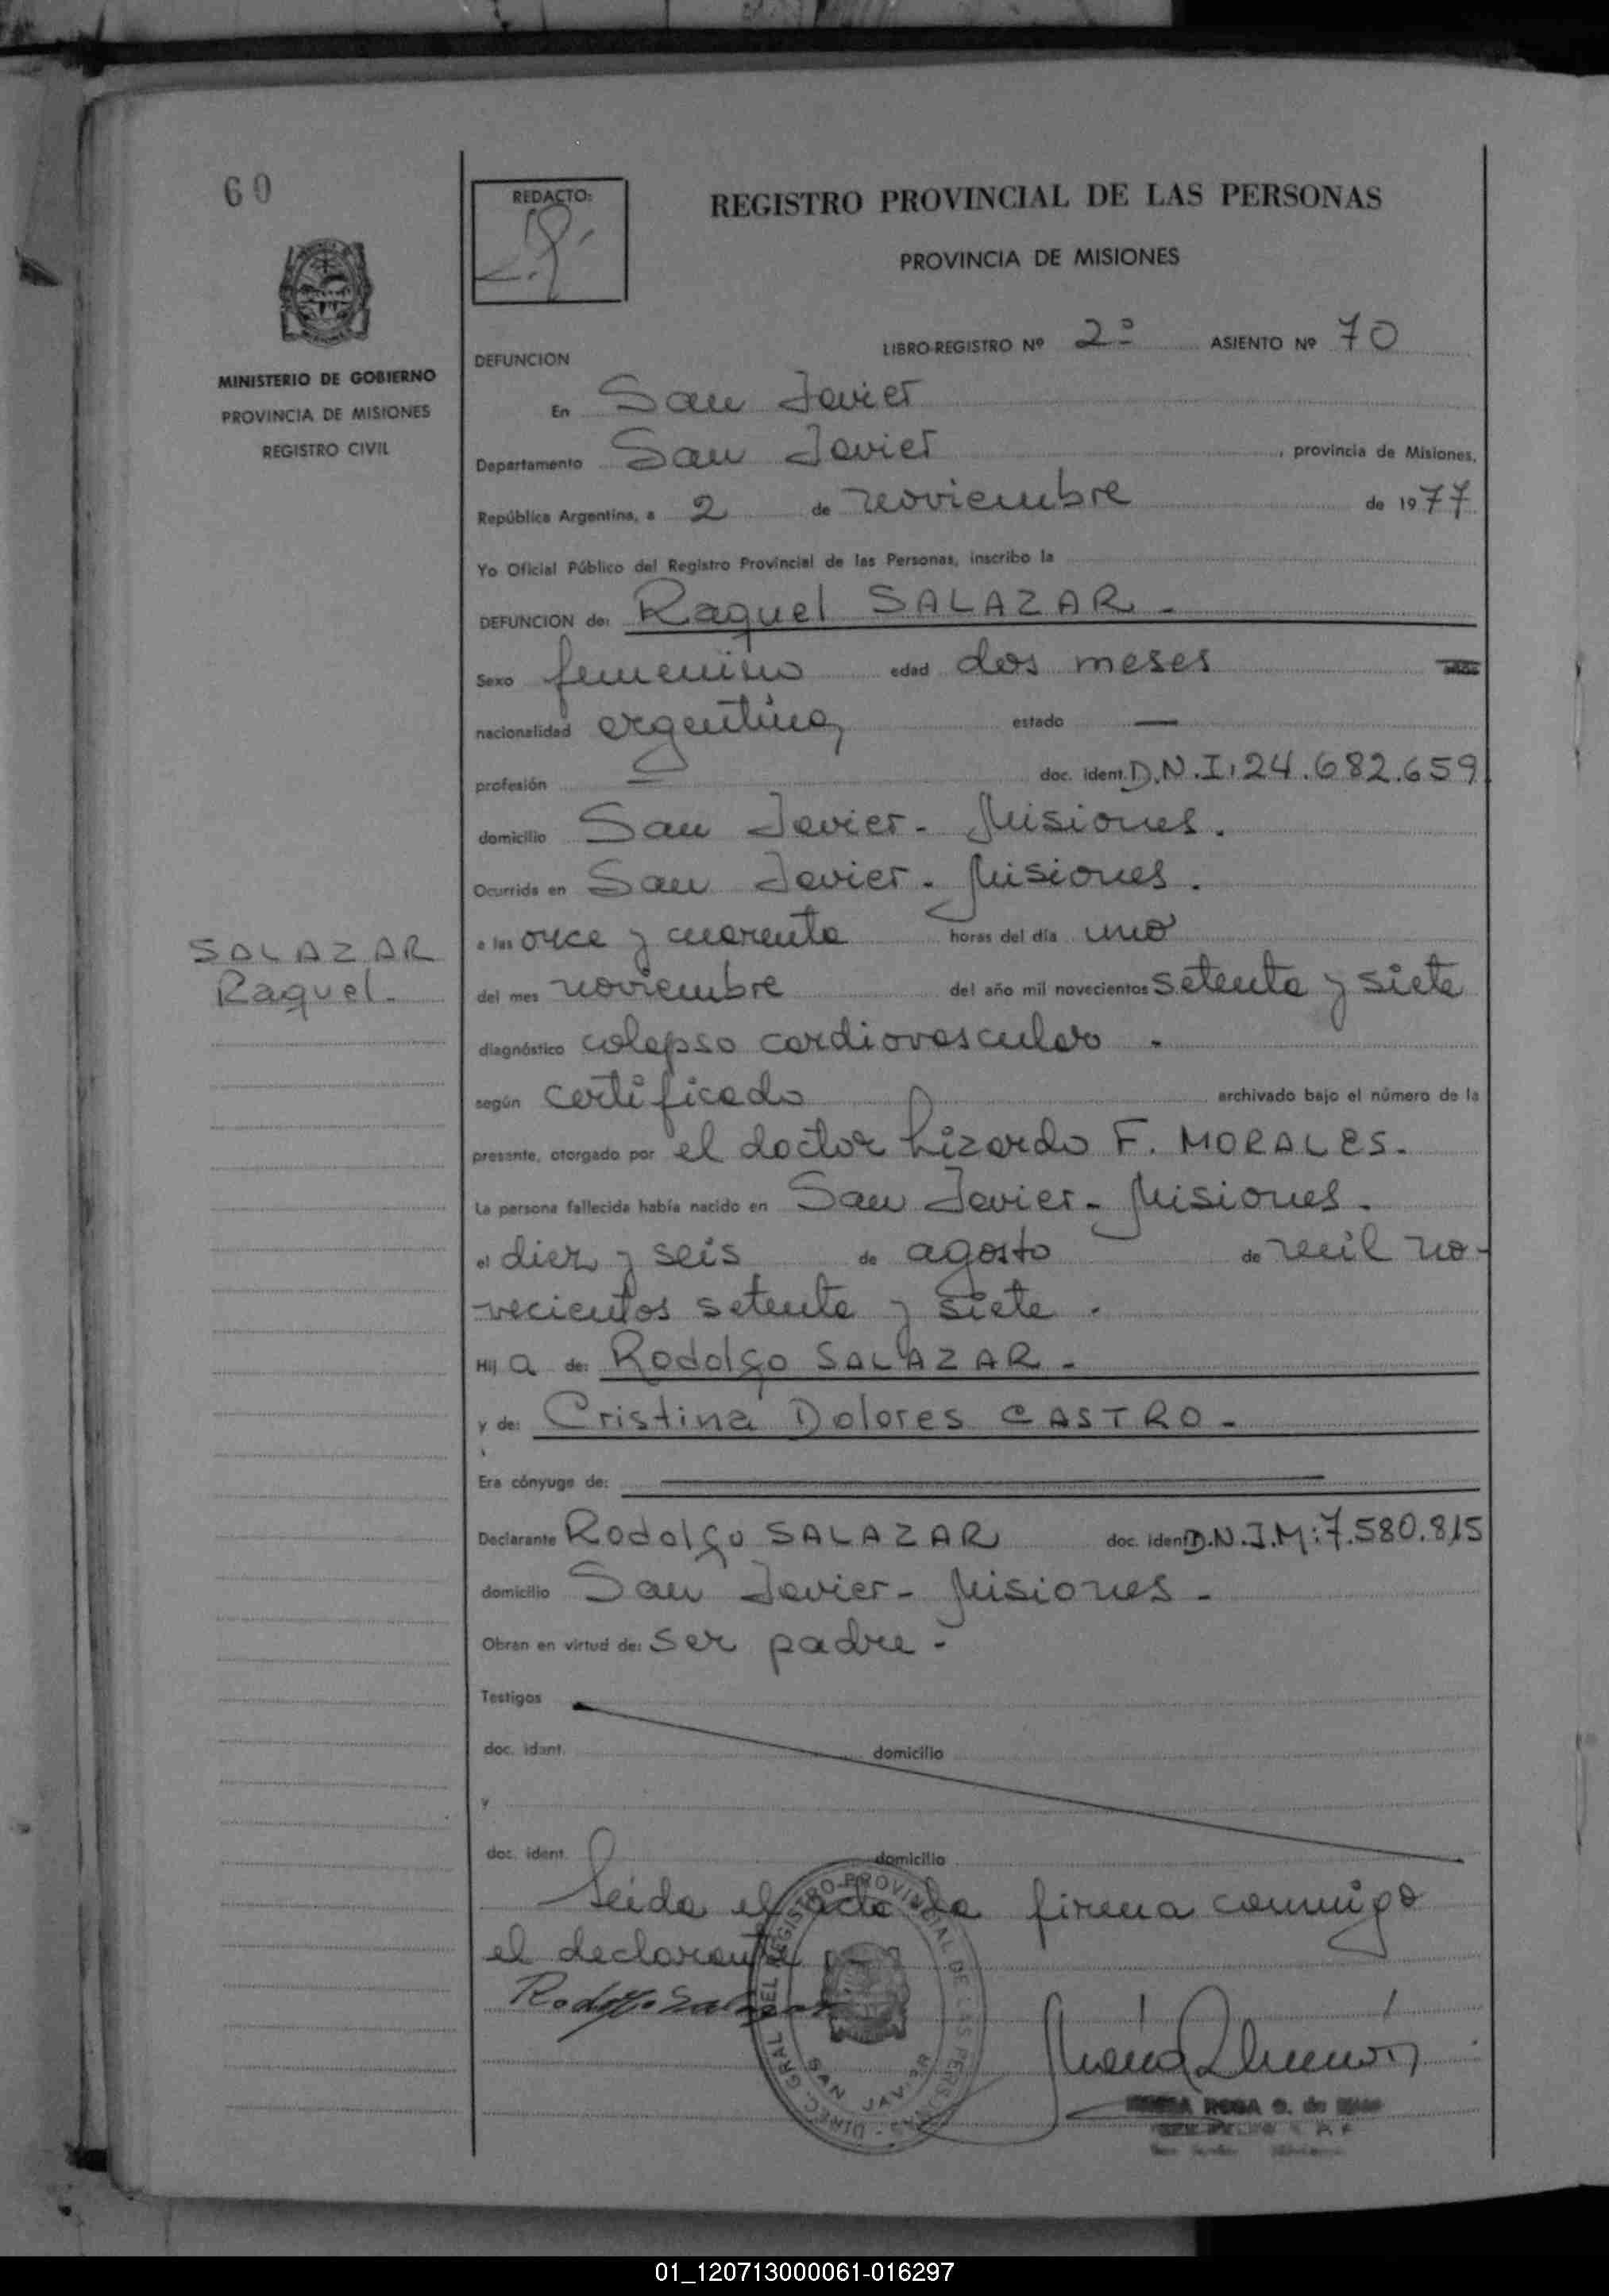 60
REDACTO:
REGISTRO PROVINCIAL DE LAS PERSONAS
PROVINCIA DE MISIONES
MINISTERIO DE GOBIERNO
PROVINCIA DE MISIONES
REGISTRO CIVIL
LIBRO-REGISTRO Nº 2º ASIENTO Nº 70
DEFUNCION
En San Javier
Departamento San Javier, provincia de Misiones,
República Argentina, a 2 de noviembre de 1977
Yo Oficial Público del Registro Provincial de las Personas, inscribo la
DEFUNCION de: Raquel SALAZAR.-
Sexo femenino edad dos meses
nacionalidad argentina, estado —
profesión — doc. ident. D.N.I: 24.682.659
domicilio San Javier - Misiones.
Ocurrida en San Javier - Misiones.
a las once y cuarenta horas del día uno
del mes noviembre del año mil novecientos setenta y siete
diagnóstico colapso cardiovascular.
según certificado archivado bajo el número de la
presente, otorgado por el doctor Lizardo F. MORALES.
La persona fallecida había nacido en San Javier - Misiones.
el diez y seis de agosto de mil no-
vecientos setenta y siete.
Hij a de: Rodolfo SALAZAR -
y de: Cristina Dolores CASTRO -
Era cónyuge de:
Declarante Rodolfo SALAZAR doc. ident D.N.I.M: 7.580.815
domicilio San Javier - Misiones -
Obran en virtud de: ser padre -
Testigos
doc. ident. domicilio
y
doc. ident. domicilio
Leida el acta la firma conmigo
el declarante
Rodolfo Salazar
SALAZAR
Raquel.
DIREC. GRAL DEL REGISTRO PROVINCIAL DE LAS PERSONAS
SAN JAVIER
ROSA G. de
01_120713000061-016297